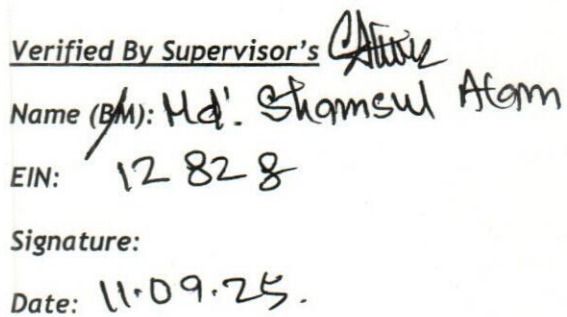 Verified By Supervisor's
Name (BM): Md. Shamsul Alam
EIN: 12828
Signature:
Date: 11.09.25.